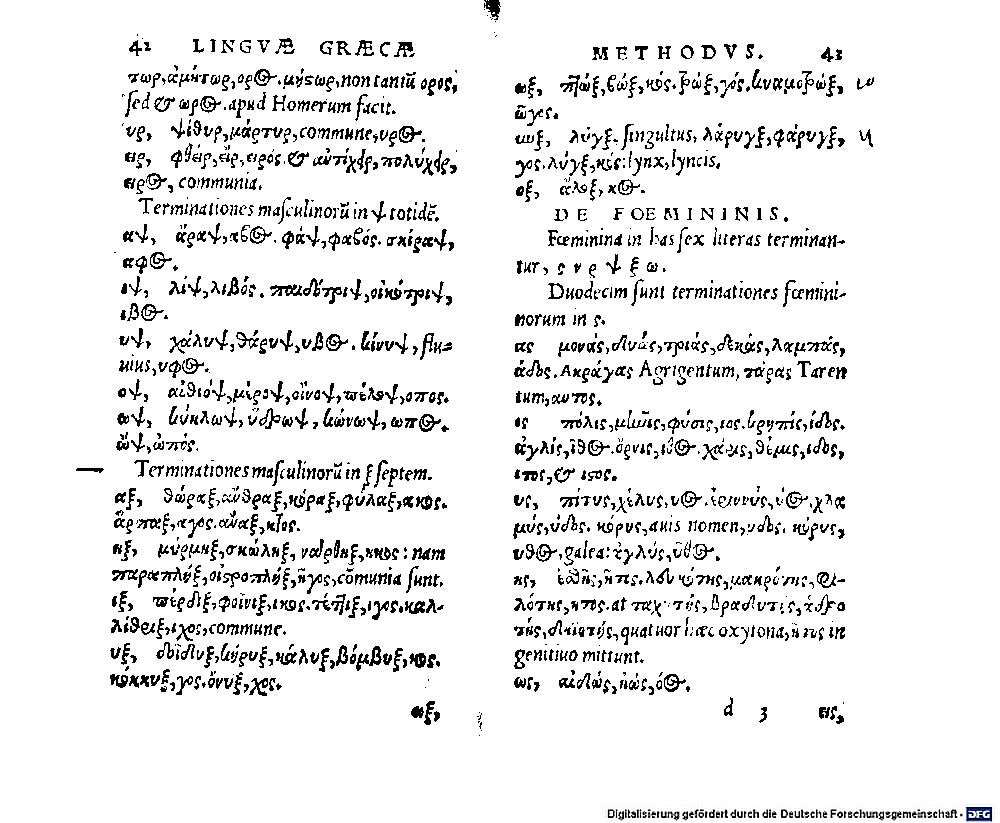 42 LINGVÆ GRÆCÆ
τωρ, ἀμήτωρ, ορος. μήςωρ, non tantũ ορος,
sed & ωρος. apud Homerum facit.
υρ, ψίθυρ, μάρτυρ, commune, υρος.
ειρ, φθείρ, εἴρ, ειρός. & αὐτίχειρ, πολύχειρ,
ειρος, communia.
Terminationes masculinorũ in ψ totidẽ.
αψ, ἄραψ, αβος. φάψ, φαβός. σκίραψ,
αφος.
ιψ, λίψ, λιβός. παιδότριψ, οἰκότριψ,
ιβος.
υψ, χάλυψ, θάρυψ, υβος. κίνυψ, flu=
uius, υφος.
οψ, αἰθίοψ, μέροψ, οἶνοψ, πέλοψ, οπος.
ωψ, κύκλωψ, ὕδρωψ, κώνωψ, ωπος.
ὤψ, ὠπός.
Terminationes masculinorũ in ξ septem.
αξ, θώραξ, ἄνθραξ, κόραξ, φύλαξ, ακος.
ἅρπαξ, αγος. ἄναξ, κτος.
ηξ, μύρμηξ, σκώληξ, νάρθηξ, ηκος: nam
παραπλήξ, οἰςροπλήξ, ῆγος, cõmunia sunt.
ιξ, πέρδιξ, φοίνιξ, ικος. τέττιξ, ιγος. καλ-
λίθριξ, ιχος, commune.
υξ, δοίδυξ, κήρυξ, κάλυξ, βόμβυξ, κος.
κόκκυξ, γος. ὄνυξ, χος.
ωξ,
METHODVS. 43
ωξ, πτώξ, βώξ, κός. ῥώξ, γός. κυαμοῤῥώξ,
ῶγος.
υγξ, λύγξ. singultus, λάρυγξ, φάρυγξ,
γος. λύγξ, κός: lynx, lyncis.
οξ, ἄλοξ, κος.
DE FOEMININIS.
Fœminina in has sex literas terminan-
tur, ς ν ρ ψ ξ ω.
Duodecim sunt terminationes fœmini-
norum in ς.
ας μονάς, δυάς, τριάς, δεκάς, λαμπάς,
άδος. Ακράγας Agrigentum, τάρας Taren
tum, αντος.
ις πόλις, μῆνις, φύσις, ιος. κρηπίς, ίδος.
ἀγλίς, ῖθος. ὄρνις, ιθος. χάρις, θέμις, ιδος,
ιτος, & ιτος.
υς, πίτυς, χέλυς, υος. ἐριννύς, ύος. χλα
μύς, ύδος. κόρυς, auis nomen, υδος. κόρυς,
υθος, galea: ἀγλύς, ῦθος.
ης, ἐσθής, ῆτος. λευκότης, μακρότης, φι-
λότης, ητος. at ταχυτής, βραδυτής, ἁδρο
τής, δηϊοτής, quatuor hæc oxytona, ῆτος in
genitiuo mittunt.
ως, αἰδώς, ἠώς, όος.
d 3 εις,
Digitalisierung gefördert durch die Deutsche Forschungsgemeinschaft - DFG